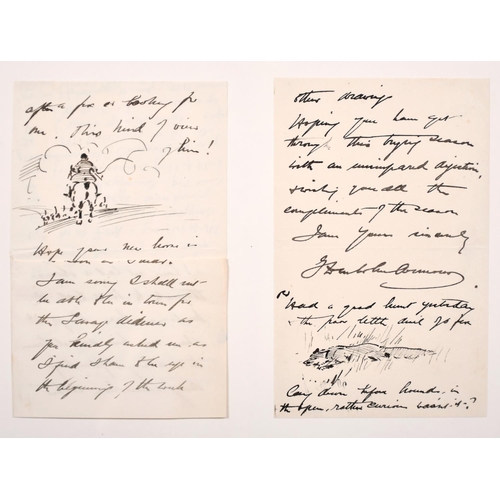 after a fox or looking for
one. This kind of view
of him!
Hope your new horse is
I am sorry I shall not
be able to be in town for
the Savage dinner as
you kindly asked me as
I find I have to be up in
the beginning of the week
other drawing
Hoping you have got
through this trying season
with an unimpaired digestion,
wishing you all the
compliments of the season
I am Yours sincerely
PS Had a good hunt yesterday
& the poor little devil of a fox
lay down before hounds in
the open, rather curious wasn't it?